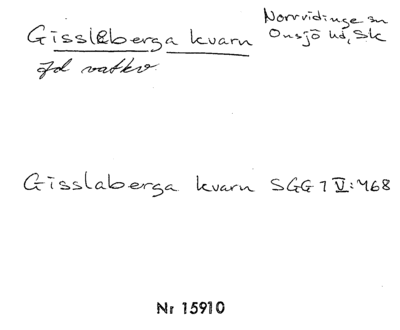 Gissleberga kvarn
Norrvidinge sn
Onsjö hd, Sk
fd vatkv.
Gisslaberga kvarn SGG 1 V:468
Nr 15910